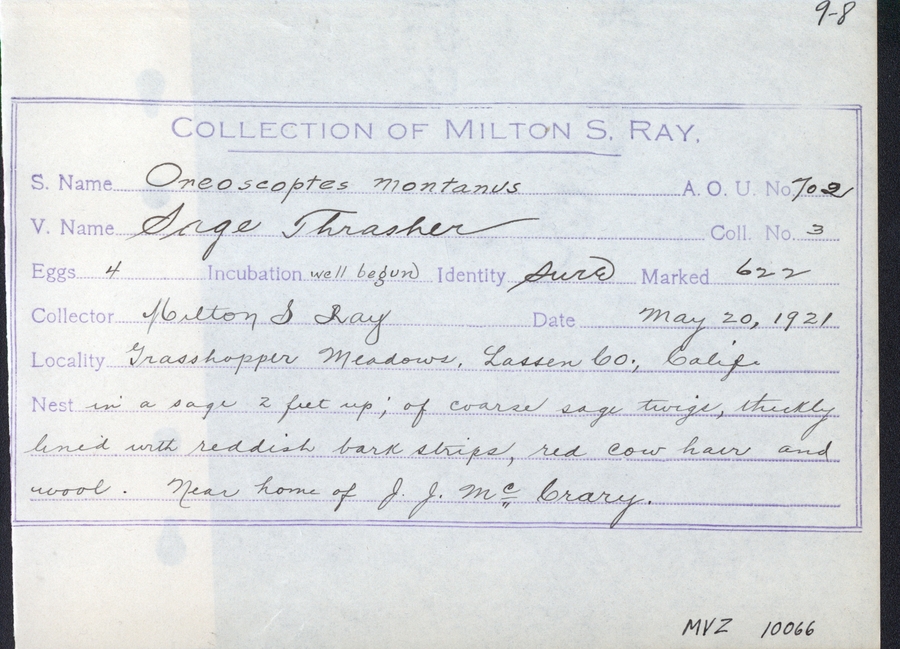 9-8
COLLECTION OF MILTON S. RAY.
S. Name Oreoscoptes montanus A. O. U. No. 702
V. Name Sage Thrasher Coll. No. 3
Eggs 4 Incubation well begun Identity Sure Marked 622
Collector Milton S Ray Date May 20, 1921
Locality Grasshopper Meadows, Lassen Co., Calif.
Nest in a sage 2 feet up; of coarse sage twigs, thickly
lined with reddish bark strips, red cow hair and
wool. Near home of J. J. McCrary.
MVZ 10066